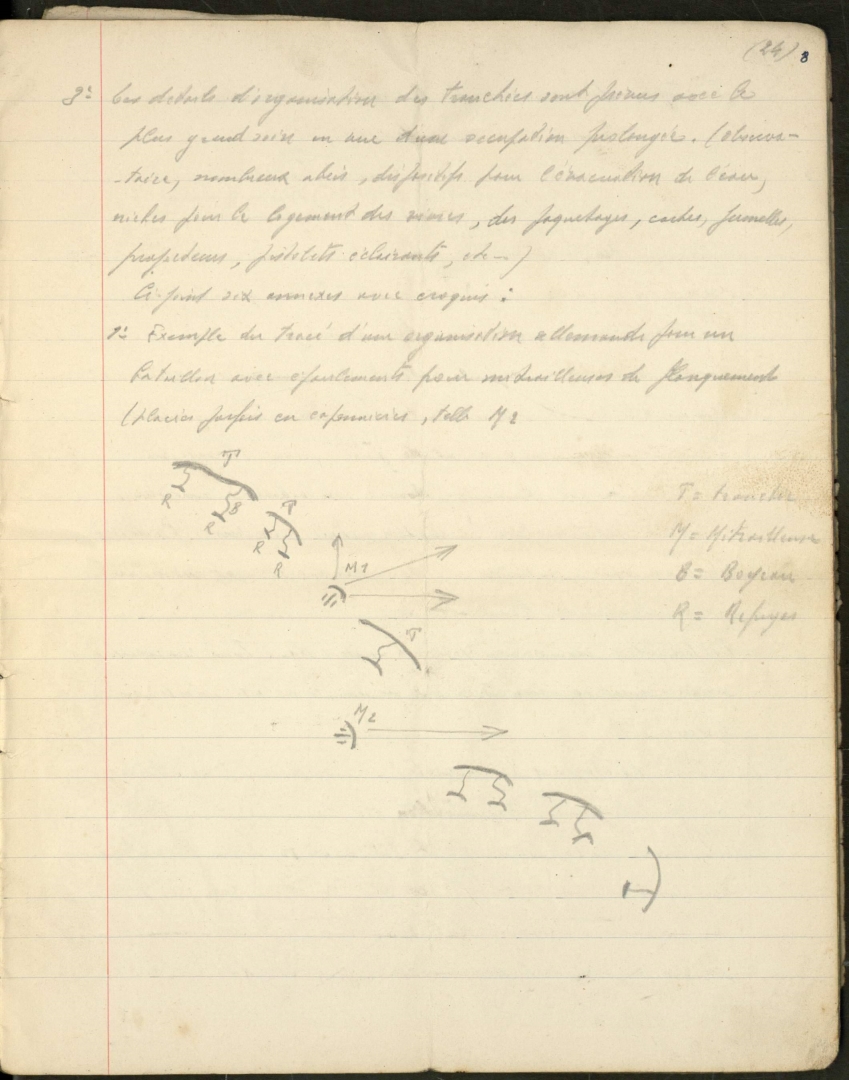 (24) 8
3º Les details d'organisation des tranchées sont prévus avec le
plus grand soin en vue d'une occupation prolongée. (observa-
-toire, nombreux abris, dispositifs pour l'évacuation de l'eau,
niches pour le logement des vivres, des paquetages, cartes, jumelles,
projecteurs, pistolets éclairants, etc...)
Ci-joint six annexes avec croquis :
1º Exemple du tracé d'une organisation allemande pour un
bataillon avec épaulements pour mitrailleuses de flanquement
(placées parfois en caponnières, telle M2
T
R
R B
T
R
R
M1
T
M2
T = tranchée
M = Mitrailleuse
B = Boyau
R = Refuges